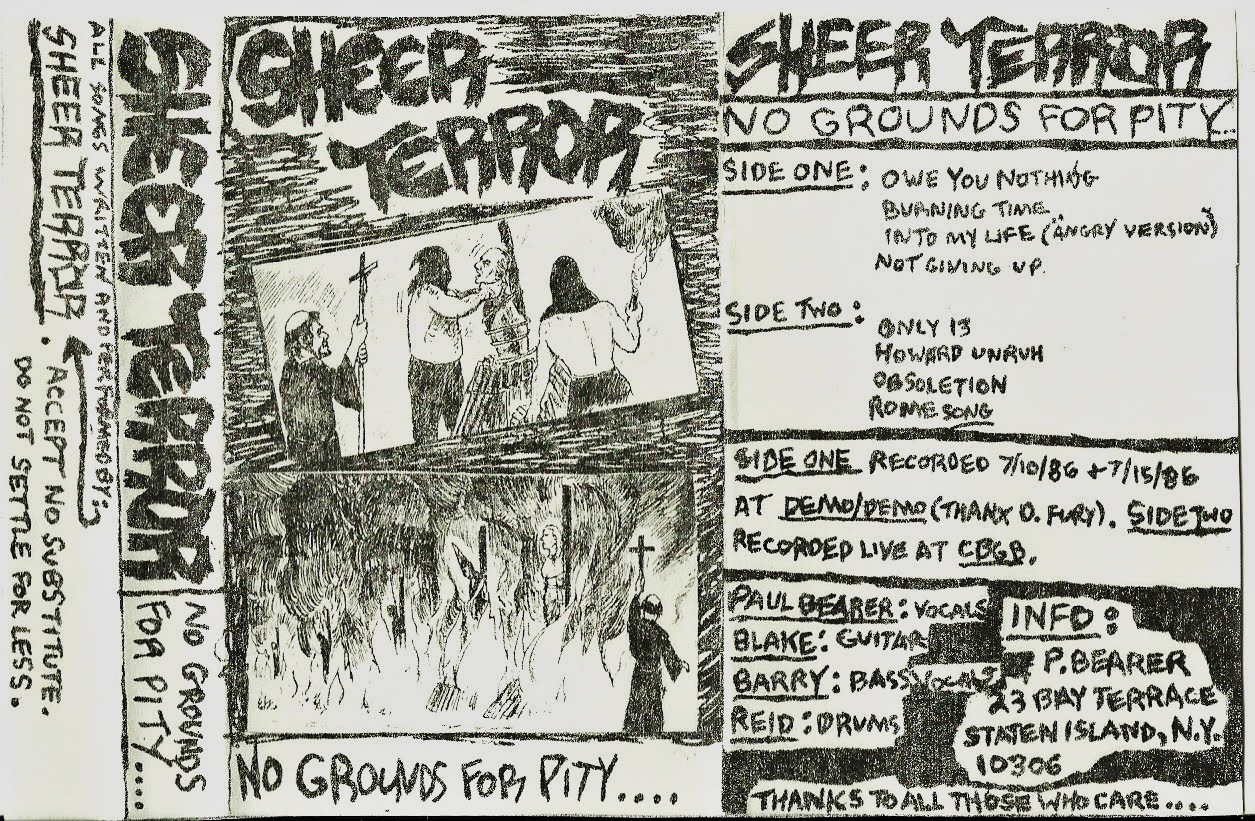 ALL SONGS WRITTEN AND PERFORMED BY:
SHEER TERROR. ACCEPT NO SUBSTITUTE.
DO NOT SETTLE FOR LESS.
SHEER TERROR
NO GROUNDS
FOR PITY.....
SHEER
TERROR
NO GROUNDS FOR PITY....
SHEER TERROR
NO GROUNDS FOR PITY...
SIDE ONE: OWE YOU NOTHING
BURNING TIME
INTO MY LIFE (ANGRY VERSION)
NOT GIVING UP.
SIDE TWO:
ONLY 13
HOWARD UNRUH
OBSOLETION
ROME SONG
SIDE ONE RECORDED 7/10/86 + 7/15/86
AT DEMO/DEMO (THANX D. FURY). SIDE TWO
RECORDED LIVE AT CBGB.
PAUL BEARER: VOCALS
BLAKE: GUITAR
BARRY: BASS VOCALS
REID: DRUMS
INFO:
P. BEARER
23 BAY TERRACE
STATEN ISLAND, N.Y.
10306
THANKS TO ALL THOSE WHO CARE....